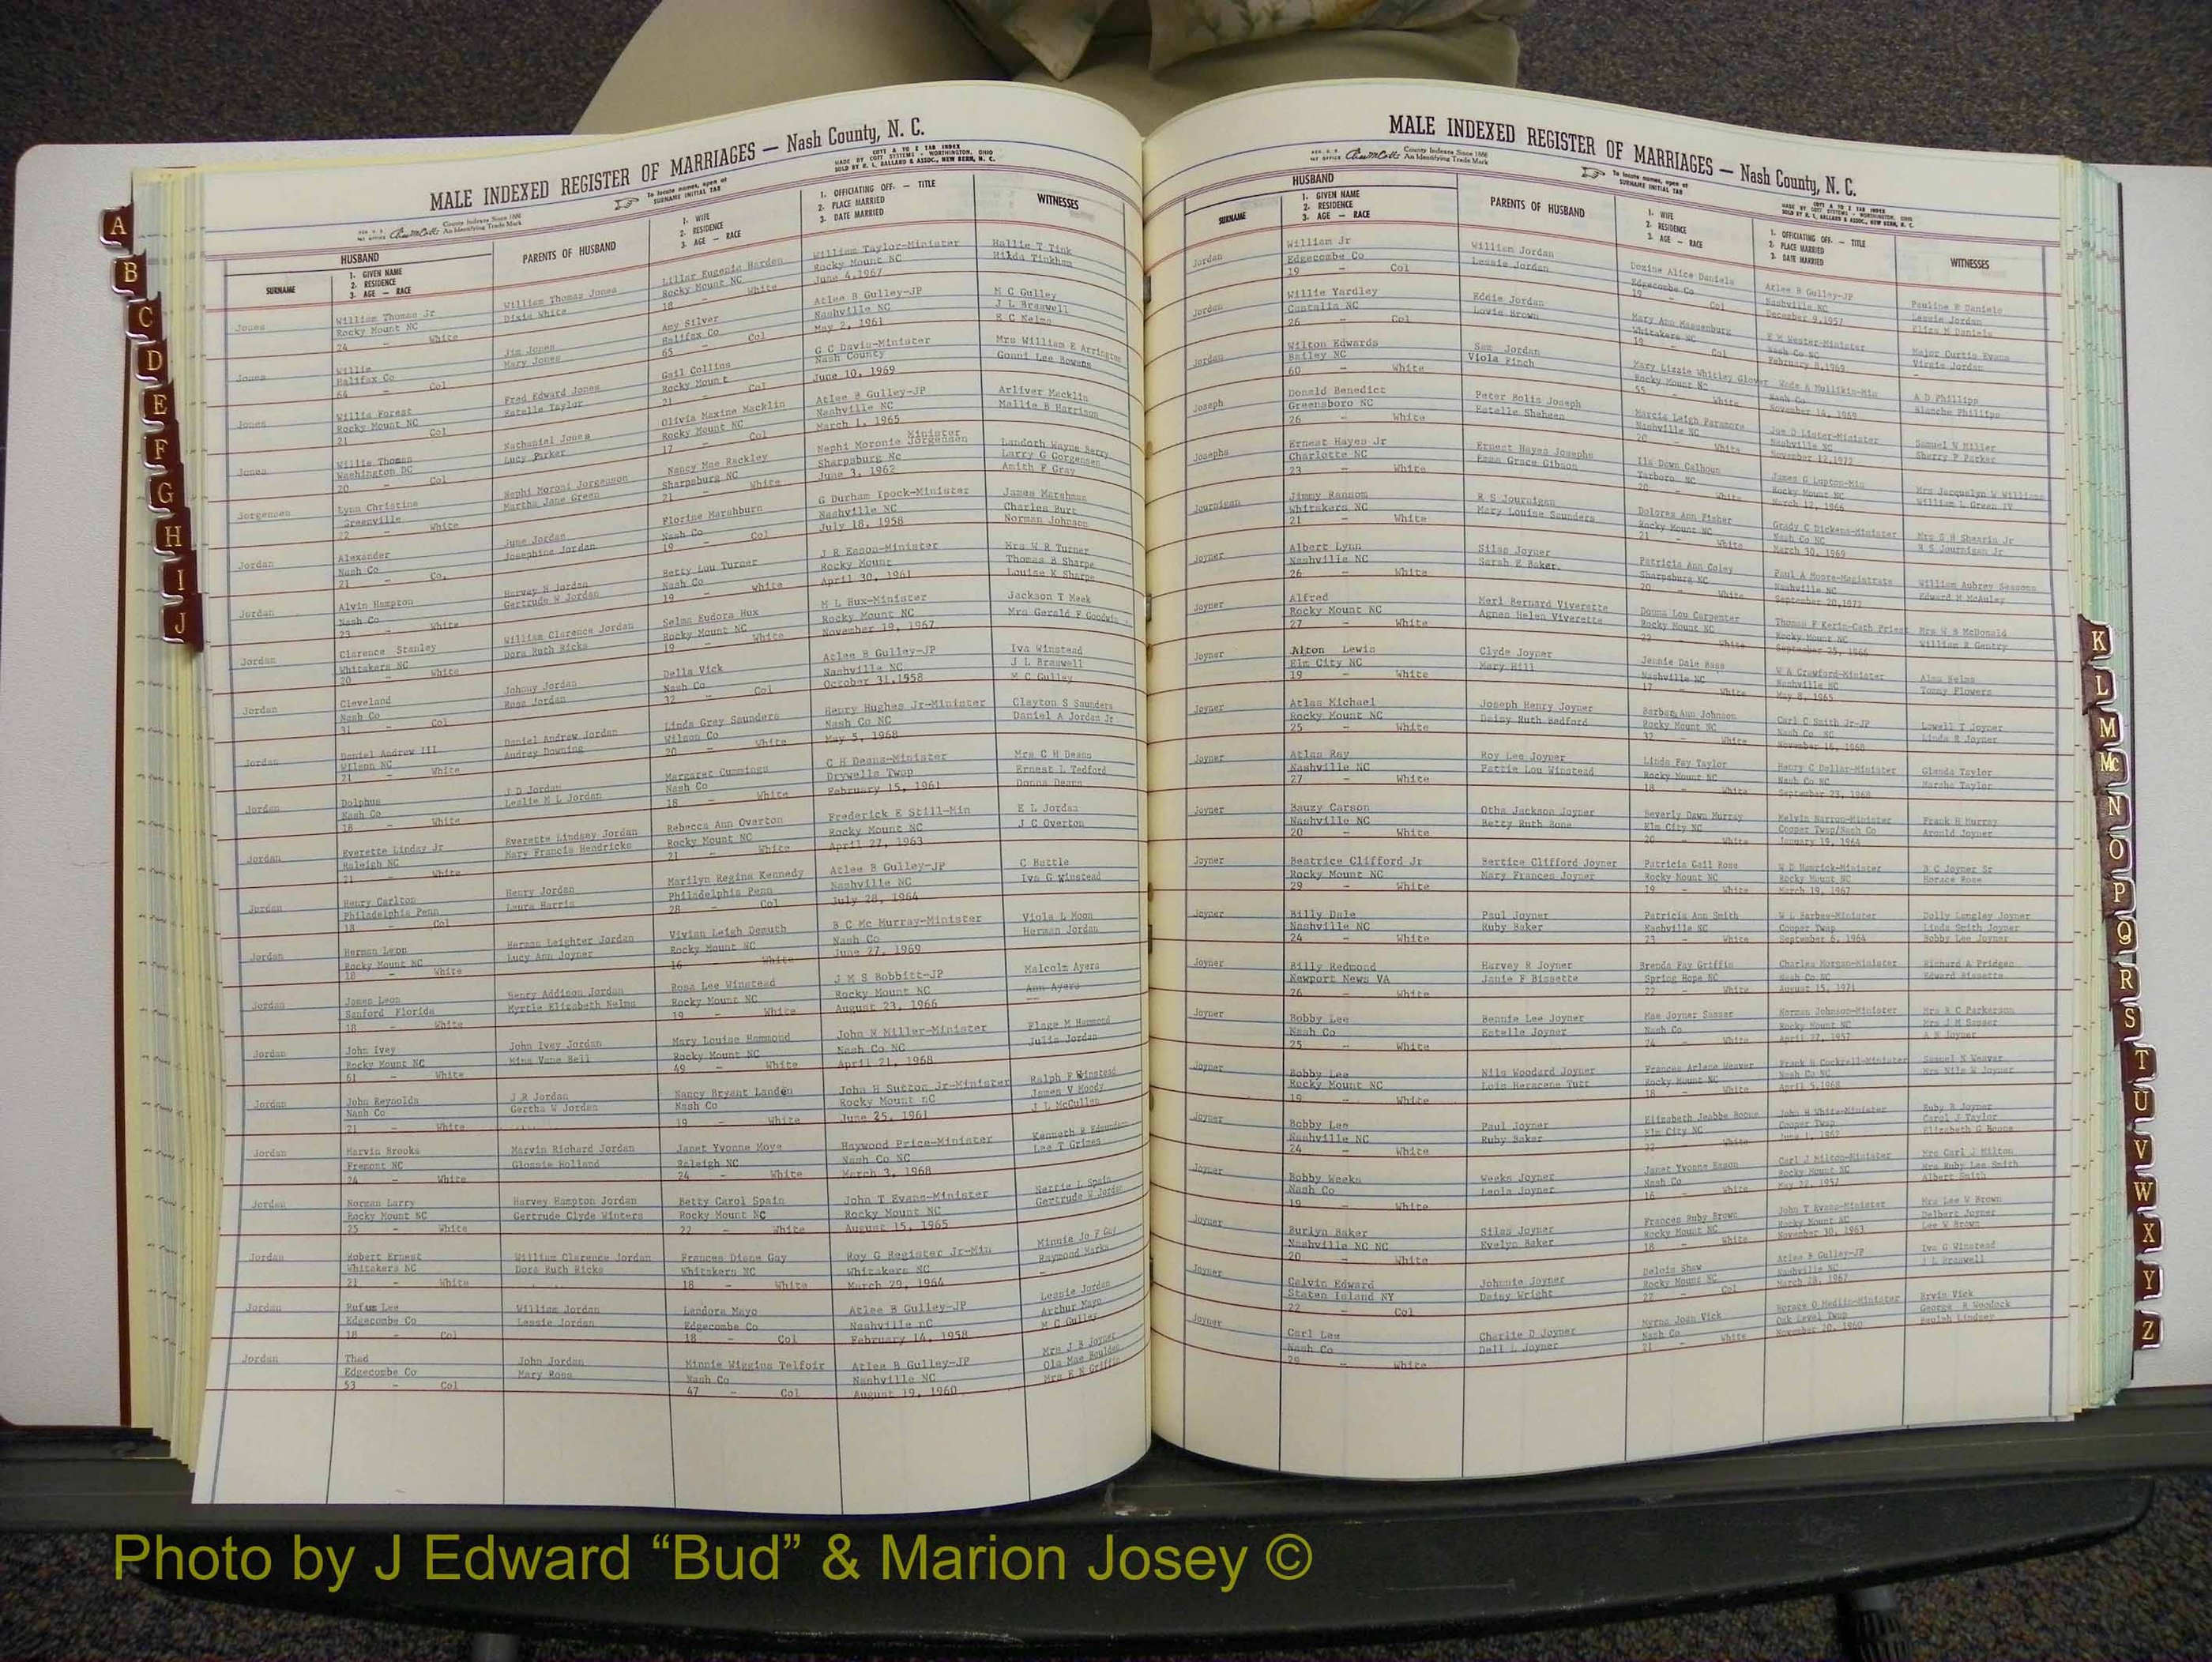 MALE INDEXED REGISTER OF MARRIAGES — Nash County, N. C.
County Indexes Since 1888
An Identifying Trade Mark
To locate names, open at
SURNAME INITIAL TAB
COTT A TO Z TAB INDEX
MADE BY COTT SYSTEMS - WORTHINGTON, OHIO
SOLD BY R. L. BALLARD & ASSOC., NEW BERN, N. C.
SURNAME
HUSBAND
1. GIVEN NAME
2. RESIDENCE
3. AGE — RACE
PARENTS OF HUSBAND
1. WIFE
2. RESIDENCE
3. AGE — RACE
1. OFFICIATING OFF. — TITLE
2. PLACE MARRIED
3. DATE MARRIED
WITNESSES
Jones William Thomas Jr William Thomas Jones Lillar Eugenia Harden William Taylor-Minister Hallie T Tink
Rocky Mount NC Dixie White Rocky Mount NC Rocky Mount NC Hilda Tinkham
24 - White 18 - White June 4,1967
Jones Willie Jim Jones Amy Silver Atlee B Gulley-JP M C Gulley
Halifax Co Mary Jones Halifax Co Nashville NC J L Braswell
64 - Col 65 - Col May 2, 1961 E C Nelms
Jones Willie Forest Fred Edward Jones Gail Collins G C Davis-Minister Mrs William E Arrington
Rocky Mount NC Estelle Taylor Rocky Mount Nash County Gonni Lee Bowens
21 Col 21 - Col June 10, 1969
Jones Willie Thomas Nathaniel Jones Olivia Maxine Macklin Atlee B Gulley-JP Arliver Macklin
Washington DC Lucy Parker Rocky Mount NC Nashville NC Mallie B Harrison
20 - Col 17 - Col March 1, 1965
Jorgensen Lynn Christine Nephi Moroni Jorgenson Nancy Mae Rackley Nephi Moronie Jorgensen Minister Landoth Wayne Berry
Greenville Martha Jane Green Sharpsburg NC Sharpsburg Nc Larry G Gorgensen
22 - White 21 - White June 3, 1962 Amith F Gray
Jordan Alexander June Jordan Florine Marshburn G Durham Ipock-Minister James Marshman
Nash Co Josephine Jordan Nash Co Nashville NC Charles Burt
21 - Co. 19 - Col July 18, 1958 Norman Johnson
Jordan Alvin Hampton Harvey H Jordan Betty Lou Turner J R Eason-Minister Mrs W R Turner
Nash Co Gertrude W Jordan Nash Co Rocky Mount Thomas B Sharpe
23 - White 19 - White April 30, 1961 Louise K Sharpe
Jordan Clarence Stanley William Clarence Jordan Selma Eudora Hux M L Hux-Minister Jackson T Meek
Whitakers NC Dora Ruth Ricks Rocky Mount NC Rocky Mount NC Mrs Gerald F Goodwin
20 - White 19 - White November 19, 1967
Jordan Cleveland Johnny Jordan Della Vick Atlee B Gulley-JP Iva Winstead
Nash Co Rosa Jordan Nash Co Nashville NC J L Braswell
31 - Col 32 - Col October 31,1958 M C Gulley
Jordan Daniel Andrew III Daniel Andrew Jordan Linda Gray Saunders Henry Hughes Jr-Minister Clayton S Saunders
Wilson NC Audrey Downing Wilson Co Nash Co NC Daniel A Jordan Jr
21 - White 20 - White May 5, 1968
Jordan Dolphus J D Jordan Margaret Cummings C H Deans-Minister Mrs C H Deans
Nash Co Leslie M L Jordan Nash Co Drywells Twnp Ernest L Tedford
18 - White 18 - White February 15, 1961 Donna Deans
Jordan Everette Lindsy Jr Everette Lindsey Jordan Rebecca Ann Overton Frederick E Still-Min E L Jordan
Raleigh NC Mary Francis Hendricks Rocky Mount NC Rocky Mount NC J C Overton
21 - White 21 - White April 27, 1963
Jordan Henry Carlton Henry Jordan Marilyn Regina Kennedy Atlee B Gulley-JP C Battle
Philadelphia Penn Laura Harris Philadelphia Penn Nashville NC Iva G Winstead
18 - Col 28 - Col July 28, 1964
Jordan Herman Leon Herman Leighter Jordan Vivian Leigh Demuth B C Mc Murray-Minister Viola L Moon
Rocky Mount NC Lucy Ann Joyner Rocky Mount NC Nash Co Herman Jordan
18 - White 16 - White June 27, 1969
Jordan James Leon Henry Addison Jordan Rosa Lee Winstead J M S Bobbitt-JP Malcolm Ayers
Sanford Florida Myrtle Elizabeth Nelms Rocky Mount NC Rocky Mount NC Ann Ayers
18 - White 19 - White August 23, 1966
Jordan John Ivey John Ivey Jordan Mary Louise Hammond John N Miller-Minister Flage M Hammond
Rocky Mount NC Mina Vane Bell Rocky Mount NC Nash Co NC Julia Jordan
61 - White 49 - White April 21, 1968
Jordan John Reynolds J R Jordan Nancy Bryant Landen John H Sutton Jr-Minister Ralph F Winstead
Nash Co Gertha W Jordan Nash Co Rocky Mount nC James V Moody
21 - White 19 - White June 25, 1961 J L McCullen
Jordan Marvin Brooks Marvin Richard Jordan Janet Yvonne Moye Haywood Price-Minister Kenneth R Edmundson
Fremont NC Glossie Holland Raleigh NC Nash Co NC Lee T Grimes
24 - White 24 - White March 3, 1968
Jordan Norman Larry Harvey Hampton Jordan Betty Carol Spain John T Evans-Minister Nettie L Spain
Rocky Mount NC Gertrude Clyde Winters Rocky Mount NC Rocky Mount NC Gertrude W Jordan
25 - White 22 - White August 15, 1965
Jordan Robert Ernest William Clarence Jordan Frances Diane Gay Roy G Register Jr-Min Minnie Jo F Gay
Whitakers NC Dora Ruth Ricks Whitakers NC Whitakers NC Raymond Marks
21 - White 18 - White March 29, 1964
Jordan Rufus Lee William Jordan Lendora Mayo Atlee B Gulley-JP Lessie Jordan
Edgecombe Co Lessie Jordan Edgecombe Co Nashville nC Arthur Mayo
18 - Col 18 - Col February 14, 1958 M C Gulley
Jordan Thad John Jordan Minnie Wiggins Telfoir Atlee B Gulley-JP Mrs J B Joyner
Edgecombe Co Mary Ross Nash Co Nashville NC Ola Mae Boulden
53 - Col 47 - Col August 19, 1960 Mrs E N Griffin
MALE INDEXED REGISTER OF MARRIAGES — Nash County, N. C.
County Indexes Since 1888
An Identifying Trade Mark
To locate names, open at
SURNAME INITIAL TAB
COTT A TO Z TAB INDEX
MADE BY COTT SYSTEMS - WORTHINGTON, OHIO
SOLD BY R. L. BALLARD & ASSOC., NEW BERN, N. C.
SURNAME
HUSBAND
1. GIVEN NAME
2. RESIDENCE
3. AGE — RACE
PARENTS OF HUSBAND
1. WIFE
2. RESIDENCE
3. AGE — RACE
1. OFFICIATING OFF. — TITLE
2. PLACE MARRIED
3. DATE MARRIED
WITNESSES
Jordan William Jr William Jordan Dozine Alice Daniels Atlee B Gulley-JP Pauline E Daniels
Edgecombe Co Lessie Jordan Edgecombe Co Nashville NC Lessie Jordan
19 - Col 19 - Col December 9,1957 Eliza M Daniels
Jordan Willie Yardley Eddie Jordan Mary Ann Massenburg E M Wester-Minister Major Curtis Evans
Castalia NC Lovie Brown Whitakers NC Nash Co NC Virgie Jordan
26 - Col 19 - Col February 8,1969
Jordan Wilton Edwards Sam Jordan Mary Lizzie Whitley Glover Wade A Mullikin-Min A D Phillips
Bailey NC Viola Finch Rocky Mount NC Nash Co Blanche Phillips
60 - White 55 - White November 14, 1969
Joseph Donald Benedict Peter Bolis Joseph Marcia Leigh Paramore Joe D Lister-Minister Samuel W Miller
Greensboro NC Estelle Shaheen Nashville NC Nashville NC Sherry P Parker
26 - White 20 - White November 12,1972
Josephs Ernest Hayes Jr Ernest Hayes Josephs Ila Dawn Calhoun James G Lupton-Min Mrs Jacquelyn W Williams
Charlotte NC Emma Grace Gibson Tarboro NC Rocky Mount NC William L Green IV
23 - White 20 - White March 12, 1966
Journigan Jimmy Ransom R S Journigan Dolores Ann Fisher Grady C Dickens-Minister Mrs S H Shearin Jr
Whitakers NC Mary Louise Saunders Rocky Mount NC Nash Co NC R S Journigan Jr
21 - White 21 - White March 30, 1969
Joyner Albert Lynn Silas Joyner Patricia Ann Coley Paul A Moore-Magistrate William Aubrey Sessoms
Nashville NC Sarah E Baker Sharpsburg NC Nashville NC Edward M McAuley
26 - White 20 - White September 20,1972
Joyner Alfred Merl Bernard Viverette Donna Lou Carpenter Thomas F Kerin-Cath Priest Mrs W B McDonald
Rocky Mount NC Agnes Helen Viverette Rocky Mount NC Rocky Mount NC William R Gentry
27 - White 22 - White September 25, 1966
Joyner Alton Lewis Clyde Joyner Jennie Dale Bass W A Crawford-Minister Alma Helms
Elm City NC Mary Hill Nashville NC Nashville NC Tommy Flowers
19 - White 17 - White May 8, 1965
Joyner Atlas Michael Joseph Henry Joyner Barbara Ann Johnson Carl C Smith Jr-JP Lowell T Joyner
Rocky Mount NC Daisy Ruth Bedford Rocky Mount NC Nash Co NC Linda R Joyner
25 - White 32 - White November 16, 1968
Joyner Atlas Ray Roy Lee Joyner Linda Fay Taylor Henry C Dollar-Minister Glenda Taylor
Nashville NC Pattie Lou Winstead Rocky Mount NC Nash Co NC Marsha Taylor
27 - White 18 - White September 23, 1968
Joyner Bauzy Carson Otha Jackson Joyner Beverly Dawn Murray Melvin Barron-Minister Frank H Murray
Nashville NC Betty Ruth Bone Elm City NC Cooper Twnp/Nash Co Arnold Joyner
20 - White 20 - White January 19, 1964
Joyner Beatrice Clifford Jr Bertice Clifford Joyner Patricia Gail Rose W D Hamrick-Minister B C Joyner Sr
Rocky Mount NC Mary Frances Joyner Rocky Mount NC Rocky Mount NC Horace Rose
29 - White 19 - White March 19, 1967
Joyner Billy Dale Paul Joyner Patricia Ann Smith W L Barbee-Minister Dolly Langley Joyner
Nashville NC Ruby Baker Nashville NC Cooper Twnp Linda Smith Joyner
24 - White 23 - White September 6, 1964 Bobby Lee Joyner
Joyner Billy Redmond Harvey R Joyner Brenda Fay Griffin Charles Morgan-Minister Richard A Pridgen
Newport News VA Janie F Bissette Spring Hope NC Nash Co NC Edward Bissette
26 - White 22 - White August 15, 1971
Joyner Bobby Lee Bennie Lee Joyner Mae Joyner Sasser Norman Johnson-Minister Mrs R C Parkerson
Nash Co Estelle Joyner Nash Co Rocky Mount NC Mrs J M Sasser
25 - White 24 - White April 27, 1957 A N Joyner
Joyner Bobby Lee Nils Woodard Joyner Frances Arlene Weaver Frank R Cockrell-Minister Samuel N Weaver
Rocky Mount NC Lois Heracene Tutt Rocky Mount NC Nash Co NC Mrs Nils W Joyner
19 - White 18 - White April 5,1968
Joyner Bobby Lee Paul Joyner Elizabeth Jeabbe Boone John H White-Minister Ruby B Joyner
Nashville NC Ruby Baker Elm City NC Cooper Twnp Carol J Taylor
24 - White 22 - White June 1, 1962 Elizabeth G Boone
Joyner Bobby Weeks Weeks Joyner Janet Yvonne Eason Carl J Milton-Minister Mrs Carl J Milton
Nash Co Leola Joyner Nash Co Rocky Mount NC Mrs Ruby Lee Smith
19 - White 16 - White May 28, 1957 Albert Smith
Joyner Burlyn Baker Silas Joyner Frances Ruby Brown John T Evans-Minister Mrs Lee W Brown
Nashville NC NC Evelyn Baker Rocky Mount NC Rocky Mount NC Delbert Joyner
20 - White 18 - White November 30, 1963 Lee W Brown
Joyner Calvin Edward Johnnie Joyner Delois Shaw Atlee B Gulley-JP Iva G Winstead
Staten Island NY Daisy Wright Rocky Mount NC Nashville NC J L Braswell
22 - Col 22 - Col March 28, 1967
Joyner Carl Lee Charlie D Joyner Myrna Joan Vick Horace O Medlin-Minister Ervin Vick
Nash Co Dell L Joyner Nash Co Oak Level Twnp George R Womlock
29 - White 21 - White November 20, 1960 Beulah Lindsey
A
B
C
D
E
F
G
H
I
J
K
L
M
Mc
N
O
P
Q
R
S
T
U
V
W
X
Y
Z
Photo by J Edward “Bud” & Marion Josey ©